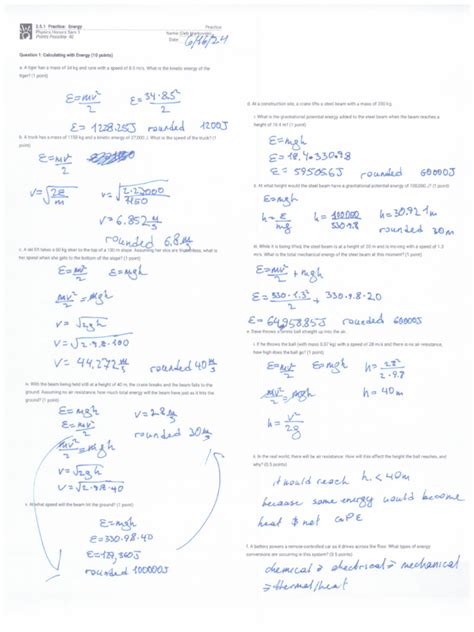 2.5.1 Practice: Energy
Practice
Physics Honors Sem 1
Points Possible: 40
Name:
Date: 6/16/24
Question 1: Calculating with Energy (10 points)
a. A tiger has a mass of 34 kg and runs with a speed of 8.5 m/s. What is the kinetic energy of the
tiger? (1 point)
E = mv²/2 E = 34·8.5²/2
E = 1228.25J rounded 1200J
b. A truck has a mass of 1150 kg and a kinetic energy of 27,000 J. What is the speed of the truck? (1
point)
E = mv²/2
v = √(2E/m) v = √(2·27000/1150)
v = 6.852 m/s
rounded 6.8 m/s
c. A ski lift takes a 60 kg skier to the top of a 100 m slope. Assuming her skis are frictionless, what is
her speed when she gets to the bottom of the slope? (1 point)
E = mv²/2 E = mgh
mv²/2 = mgh
v = √2gh
v = √2·9.8·100
v = 44.272 m/s
rounded 40 m/s
iv. With the beam being held still at a height of 40 m, the crane breaks and the beam falls to the
ground. Assuming no air resistance, how much total energy will the beam have just as it hits the
ground? (1 point)
E = mgh v = 28 m/s
E = mv²/2 rounded 30 m/s
mv²/2 = mgh
v = √2gh
v = √2·9.8·40
v. At what speed will the beam hit the ground? (1 point)
E = mgh
E = 330·9.8·40
E = 129,360J
rounded 100000J
d. At a construction site, a crane lifts a steel beam with a mass of 330 kg.
i. What is the gravitational potential energy added to the steel beam when the beam reaches a
height of 18.4 m? (1 point)
E = mgh
E = 18.4·330·9.8
E = 59505.6J rounded 60000J
ii. At what height would the steel beam have a gravitational potential energy of 100,000 J? (1 point)
E = mgh
h = E/mg h = 100000/330·9.8 h = 30.921m
rounded 30m
iii. While it is being lifted, the steel beam is at a height of 20 m and is moving with a speed of 1.3
m/s. What is the total mechanical energy of the steel beam at this moment? (1 point)
E = mv²/2 + mgh
E = 330·1.3²/2 + 330·9.8·20
E = 64958.85J rounded 60000J
e. Dave throws a tennis ball straight up into the air.
i. If he throws the ball (with mass 0.57 kg) with a speed of 28 m/s and there is no air resistance,
how high does the ball go? (1 point)
E = mv²/2 E = mgh h = 28²/2·9.8
mv²/2 = mgh h = 40m
h = v²/2g
ii. In the real world, there will be air resistance. How will this affect the height the ball reaches, and
why? (0.5 points)
it would reach h < 40m
because some energy would become
heat & not GPE
f. A battery powers a remote-controlled car as it drives across the floor. What types of energy
conversions are occurring in this system? (0.5 points)
chemical → electrical → mechanical
→ thermal/heat